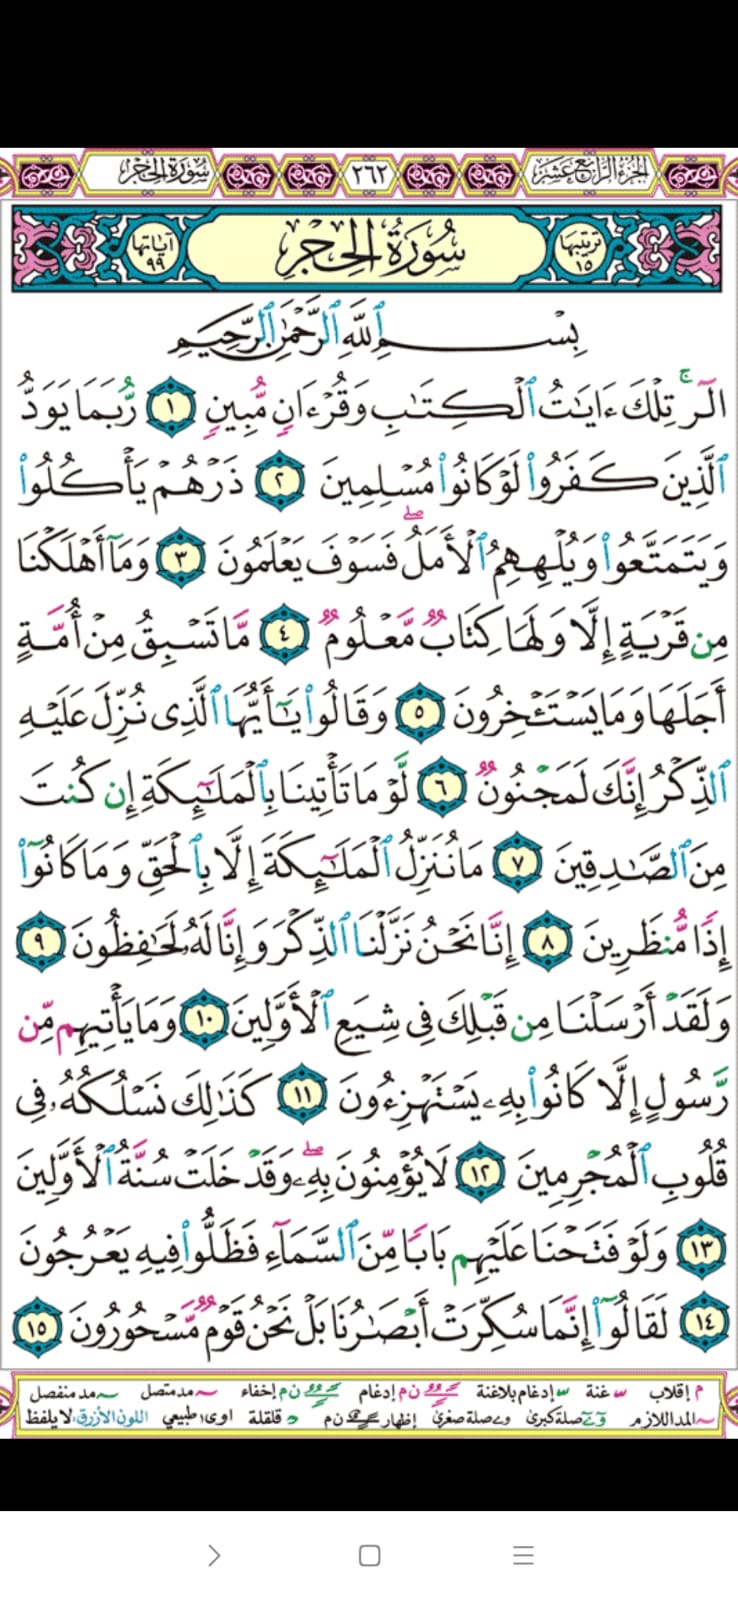 الجزء الرابع عشر ٢٦٢ سورة الحجر
ترتيبها ١٥ سُورَةُ الحِجْرِ آياتها ٩٩
بِسْمِ ٱللَّهِ ٱلرَّحْمَٰنِ ٱلرَّحِيمِ
الٓرۚ تِلْكَ ءَايَٰتُ ٱلْكِتَٰبِ وَقُرْءَانٍ مُّبِينٍ ١ رُّبَمَا يَوَدُّ
ٱلَّذِينَ كَفَرُوا۟ لَوْ كَانُوا۟ مُسْلِمِينَ ٢ ذَرْهُمْ يَأْكُلُوا۟
وَيَتَمَتَّعُوا۟ وَيُلْهِهِمُ ٱلْأَمَلُۖ فَسَوْفَ يَعْلَمُونَ ٣ وَمَآ أَهْلَكْنَا
مِن قَرْيَةٍ إِلَّا وَلَهَا كِتَابٌ مَّعْلُومٌ ٤ مَّا تَسْبِقُ مِنْ أُمَّةٍ
أَجَلَهَا وَمَا يَسْتَـْٔخِرُونَ ٥ وَقَالُوا۟ يَٰٓأَيُّهَا ٱلَّذِى نُزِّلَ عَلَيْهِ
ٱلذِّكْرُ إِنَّكَ لَمَجْنُونٌ ٦ لَّوْ مَا تَأْتِينَا بِٱلْمَلَٰٓئِكَةِ إِن كُنتَ
مِنَ ٱلصَّٰدِقِينَ ٧ مَا نُنَزِّلُ ٱلْمَلَٰٓئِكَةَ إِلَّا بِٱلْحَقِّ وَمَا كَانُوٓا۟
إِذًا مُّنظَرِينَ ٨ إِنَّا نَحْنُ نَزَّلْنَا ٱلذِّكْرَ وَإِنَّا لَهُۥ لَحَٰفِظُونَ ٩
وَلَقَدْ أَرْسَلْنَا مِن قَبْلِكَ فِى شِيَعِ ٱلْأَوَّلِينَ ١٠ وَمَا يَأْتِيهِم مِّن
رَّسُولٍ إِلَّا كَانُوا۟ بِهِۦ يَسْتَهْزِءُونَ ١١ كَذَٰلِكَ نَسْلُكُهُۥ فِى
قُلُوبِ ٱلْمُجْرِمِينَ ١٢ لَا يُؤْمِنُونَ بِهِۦۖ وَقَدْ خَلَتْ سُنَّةُ ٱلْأَوَّلِينَ
١٣ وَلَوْ فَتَحْنَا عَلَيْهِم بَابًا مِّنَ ٱلسَّمَآءِ فَظَلُّوا۟ فِيهِ يَعْرُجُونَ
١٤ لَقَالُوٓا۟ إِنَّمَا سُكِّرَتْ أَبْصَٰرُنَا بَلْ نَحْنُ قَوْمٌ مَّسْحُورُونَ ١٥
م إقلاب غنة إدغام بلاغنة ن م إدغام ن م إخفاء مد متصل مد منفصل
المد اللازم صلة كبرى صلة صغرى إظهار ن م قلقلة اوى طبيعي اللون الأزرق: لا يلفظ